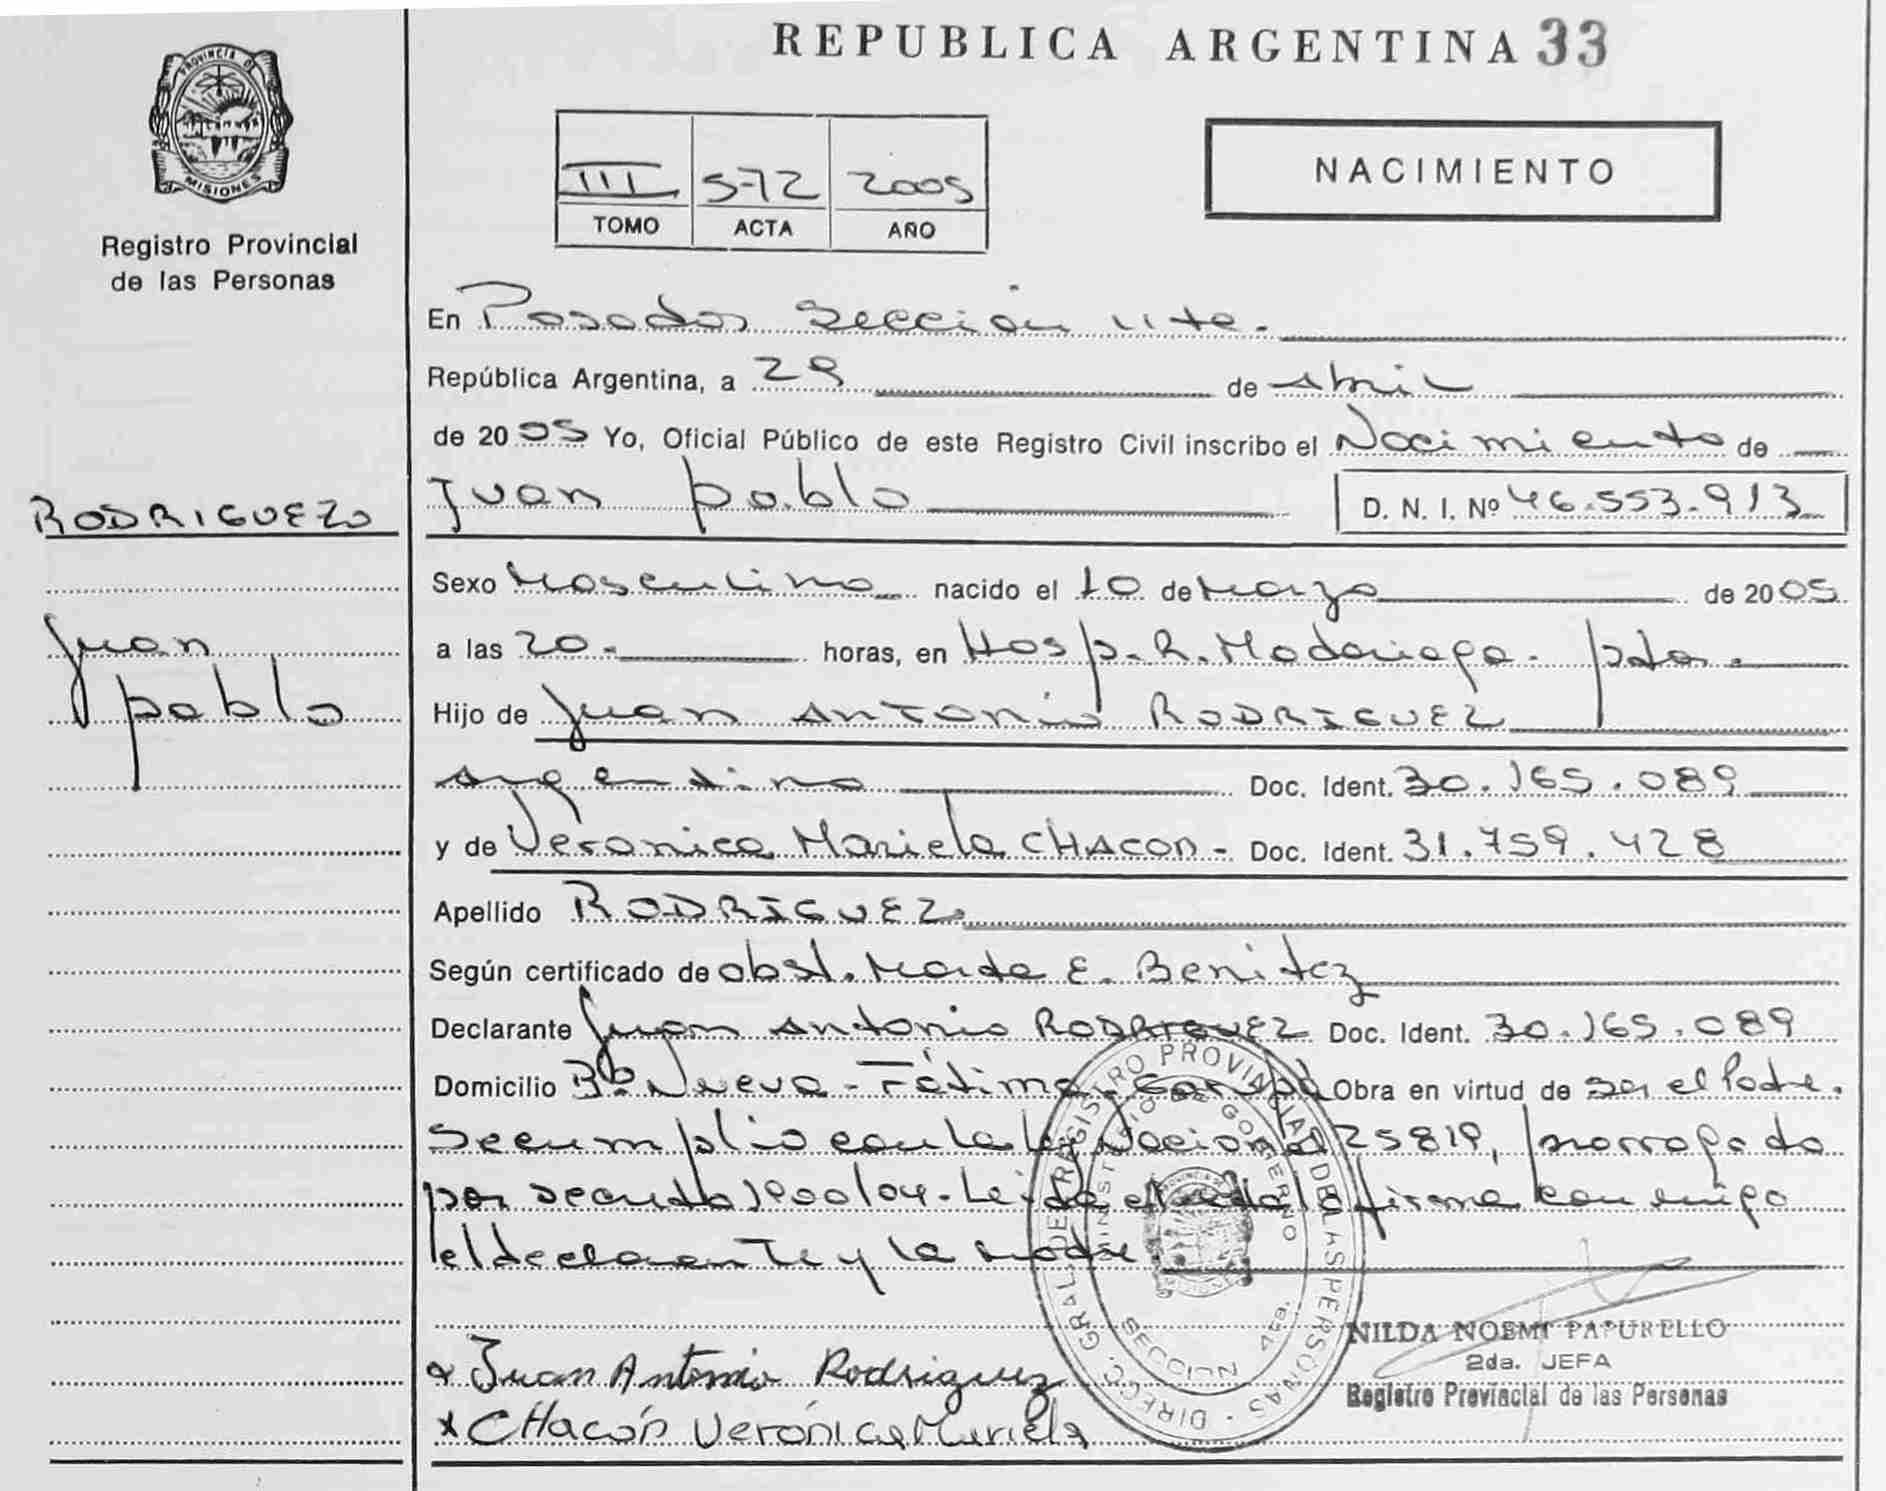 REPUBLICA ARGENTINA 33
PROVINCIA DE MISIONES
Registro Provincial
de las Personas
III 572 2005
TOMO ACTA AÑO
NACIMIENTO
En Posadas Sección 4ta.
República Argentina, a 29 de Abril
de 2005 Yo, Oficial Público de este Registro Civil inscribo el Nacimiento de
Juan Pablo D. N. I. Nº 46.553.913
RODRIGUEZ
Juan
Pablo
Sexo Masculino nacido el 10 de Marzo de 2005
a las 20. horas, en Hosp. R. Madariaga. Pdas.
Hijo de Juan Antonio RODRIGUEZ
Argentino Doc. Ident. 30.165.089
y de Veronica Mariela CHACON - Doc. Ident. 31.759.428
Apellido RODRIGUEZ
Según certificado de obst. E. Benitez
Declarante Juan Antonio RODRIGUEZ Doc. Ident. 30.165.089
Domicilio Bº Nueva - Fátima. Garupá Obra en virtud de ser el Padre.
Se cumplio con la ley Nacional 25819, prorrogado
por decreto 1900/04 - Leida el acta la firma con migo
el declarante y la madre.
DIRECC. GRAL. DEL REGISTRO PROVINCIAL DE LAS PERSONAS
MINISTERIO DE GOBIERNO
SECCION 4ta.
NILDA NOEMI PAPURELLO
2da. JEFA
Registro Provincial de las Personas
x Juan Antonio Rodriguez
x CHacón Verónica Mariela